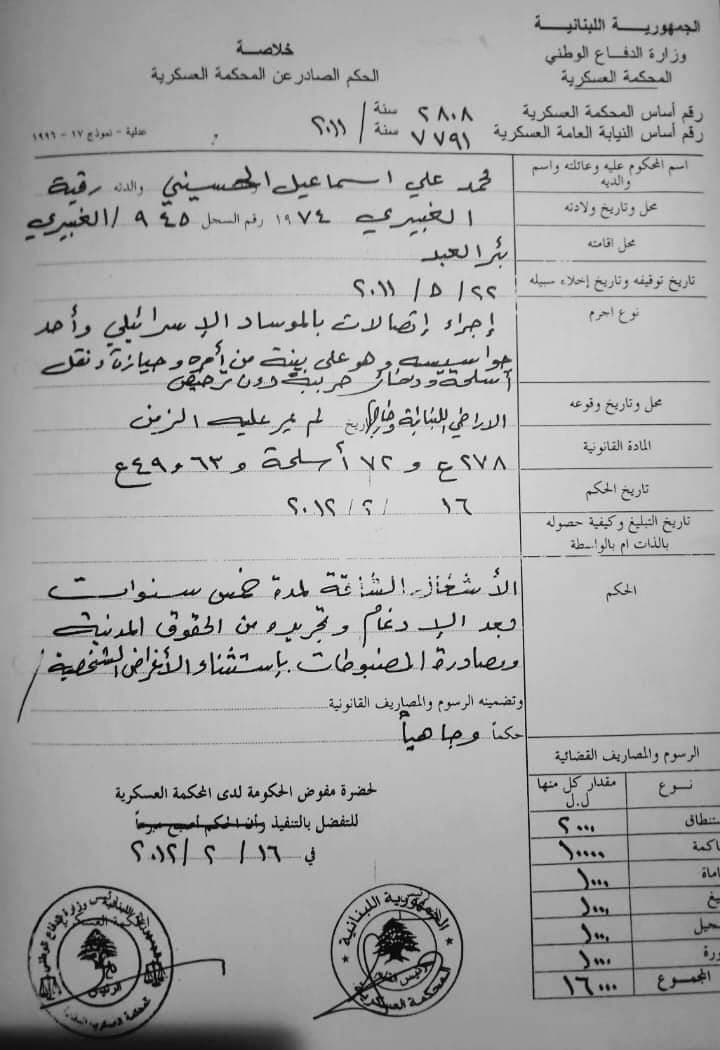 الجمهورية اللبنانية
وزارة الدفاع الوطني
المحكمة العسكرية
خلاصة
الحكم الصادر عن المحكمة العسكرية
رقم أساس المحكمة العسكرية ٢٨٠٨ سنة
رقم أساس النيابة العامة العسكرية ٧٧٩١ سنة / ٢٠١١
عدلية - نموذج ١٧ - ١٩٩٦
اسم المحكوم عليه وعائلته واسم والديه
محمد علي اسماعيل الحسيني والدته رقية
محل وتاريخ ولادته
الغبيري ١٩٧٤ رقم السجل ٩٤٥ / الغبيري
محل اقامته
بئر العبد
تاريخ توقيفه وتاريخ إخلاء سبيله
٢٢ / ٥ / ٢٠١١
نوع اجرم
إجراء إتصالات بالموساد الإسرائيلي وأحد
جواسيسه وهو على بينة من أمره وحيازة ونقل
أسلحة وذخائر حربية دون ترخيص
محل وتاريخ وقوعه
الاراضي اللبنانية وخارجها تاريخ لم يمر عليه الزمن
المادة القانونية
٢٧٨ ع و ٧٢ أسلحة و ٦٣ و ٤٩ ع
تاريخ الحكم
١٦ / ٢ / ٢٠١٢
تاريخ التبليغ وكيفية حصوله
بالذات ام بالواسطة
الحكم
الأشغال الشاقة لمدة خمس سنوات
بعد الإدغام وتجريده من الحقوق المدنية
ومصادرة المضبوطات بإستثناء الأغراض الشخصية /
وتضمينه الرسوم والمصاريف القانونية
حكماً وجاهياً
لحضرة مفوض الحكومة لدى المحكمة العسكرية
للتفضل بالتنفيذ وأن الحكم أصبح مبرماً
في ١٦ / ٢ / ٢٠١٢
الرسوم والمصاريف القضائية
نوع مقدار كل منها
ل.ل
ستنطاق ٢٠٠٠
اكمة ١٠٠٠٠
اماة ١٠٠٠
يغ ١٠٠٠
جيل ١٠٠٠
ورة ١٠٠٠
المجموع ١٦٠٠٠
الجمهورية اللبنانية
المحكمة العسكرية
الرئيس